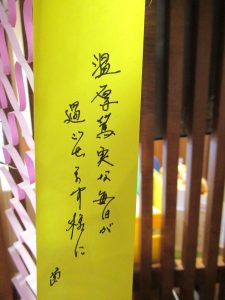 温厚篤実な毎日が
過ごせます様に